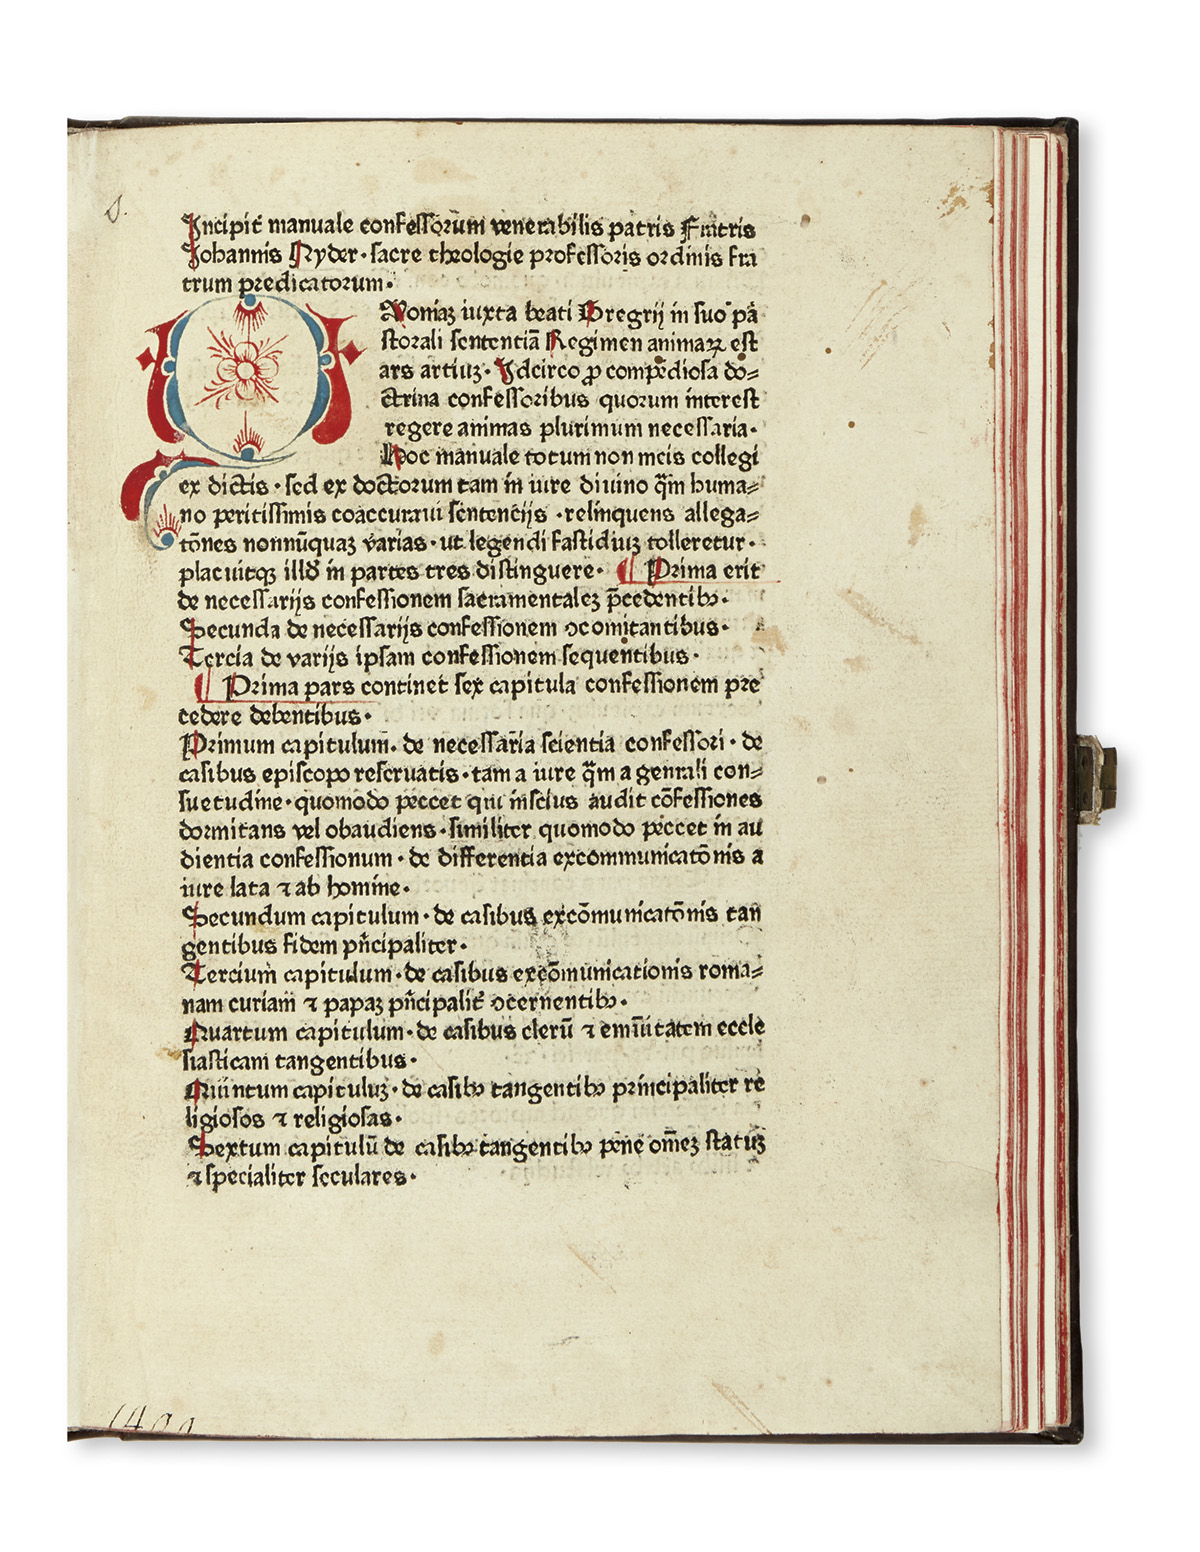 S.
Incipit manuale confessorum venerabilis patris Fratris
Johannis Nyder · sacre theologie professoris ordinis fra
trum predicatorum ·
Qvoniaȝ iuxta beati Gregrij in suo pa̅
storali sententia̅ Regimen animaꝝ est
ars artiuȝ · Idcirco ꝓ compe̅diosa do⸗
ctrina confessoribus quorum interest
regere animas plurimum necessaria ·
Hoc manuale totum non meis collegi
ex dictis · sed ex doctorum tam in iure diuino q̅m huma⸗
no peritissimis coaccuraui sentencijs · relinquens allega⸗
to̅nes nonnu̅quaȝ varias · ut legendi fastidiuȝ tolleretur ·
placuitqȝ illd̅ in partes tres distinguere · ¶ Prima erit
de necessarijs confessionem sacramentaleȝ p̅cedentibꝫ ·
Secunda de necessarijs confessionem ꝯcomitantibus ·
Tercia de varijs ipsam confessionem sequentibus ·
¶ Prima pars continet sex capitula confessionem pre
cedere debentibus ·
Primum capitulum · de necessaria scientia confessori · de
casibus episcopo reseruatis · tam a iure q̅m a gen̅rali con⸗
suetudine · quomodo peccet qui inscius audit co̅fessiones
dormitans vel obaudiens · similiter quomodo peccet in au
dientia confessionum · de differentia excommunicato̅nis a
iure lata ⁊ ab homine ·
Secundum capitulum · de casibus exco̅municato̅nis tan
gentibus fidem pn̅cipaliter ·
Tercium capitulum · de casibus exco̅municationis roma⸗
nam curiam ⁊ papaȝ pn̅cipalit̅ ꝯcernentibꝫ ·
Quartum capitulum · de casibus cleru̅ ⁊ emu̅itatem eccle
siasticam tangentibus ·
Quintum capituluȝ · de casibꝫ tangentibꝫ principaliter re
ligiosos ⁊ religiosas ·
Sextum capitulu̅ de casibꝫ tangentibꝫ pene om̅eȝ statuȝ
⁊ specialiter seculares ·